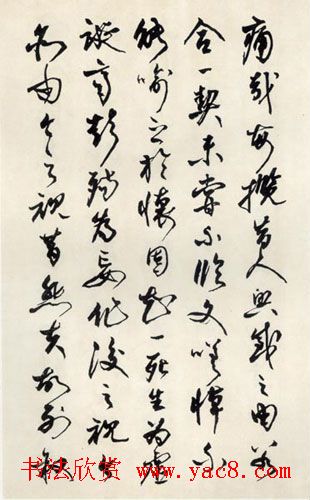 痛哉每攬昔人興感之由若
合一契未嘗不臨文嗟悼不
能喻之於懷固知一死生為虛
誕齊彭殤為妄作後之視今
亦由今之視昔悲夫故列敘
书法欣赏 www.yac8.com